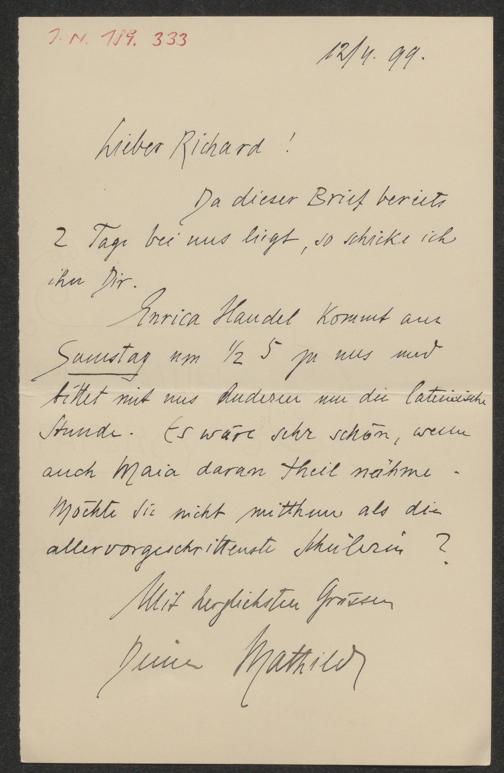 J. N. 189.333
12/4. 99.
Lieber Richard!
Da dieser Brief bereits
2 Tage bei uns liegt, so schicke ich
ihn Dir.
Enrica Handel kommt am
Samstag um 1/2 5 zu uns und
bittet mit uns Anderen um die lateinische
Stunde. Es wäre sehr schön, wenn
auch Maia daran theil nähme.
Möchte sie nicht mitthun als die
allervorgeschrittenste Schülerin?
Mit herzlichsten Grüssen
Deine Mathilde